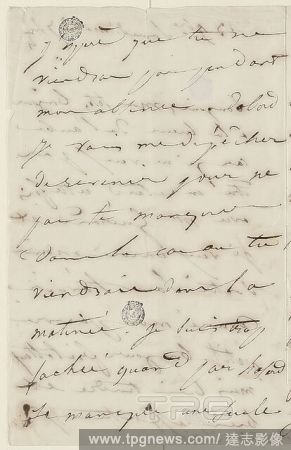 j'espère que tu ne
viendras pas pendant
mon absence. D'abord
je vais me dépêcher
de revenir pour ne
pas te manquer
dans le cas où tu
viendrais dans la
matinée. Je suis trop
fachée quand par hasard
je manque une seule
TPG
www.tpgnews.com / 達志影像